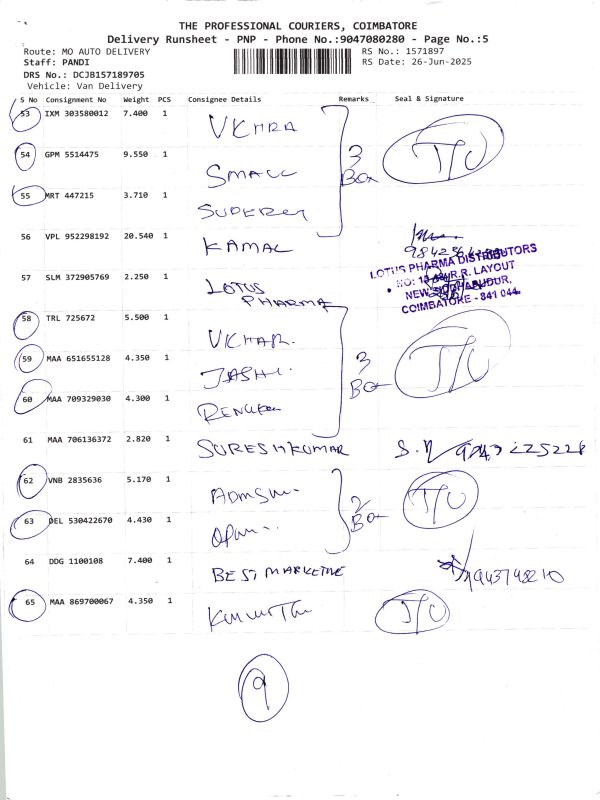 THE PROFESSIONAL COURIERS, COIMBATORE
Delivery Runsheet - PNP - Phone No.:9047080280 - Page No.:5
Route: MO AUTO DELIVERY RS No.: 1571897
Staff: PANDI RS Date: 26-Jun-2025
DRS No.: DCJB157189705
Vehicle: Van Delivery
S No Consignment No Weight PCS Consignee Details Remarks Seal & Signature
53 IXM 303580012 7.400 1
54 GPM 5514475 9.550 1 SMALL 3 Box T/U
55 MRT 447215 3.710 1
56 VPL 952298192 20.540 1 KAMAL
57 SLM 372905769 2.250 1 LOTUS PHARMA
LOTUS PHARMA DISTRIBUTORS
R.R. LAYOUT
NEW SIDDHAPUDUR,
COIMBATORE - 641 044.
58 TRL 725672 5.500 1
59 MAA 651655128 4.350 1 3 Box T/U
60 MAA 709329030 4.300 1
61 MAA 706136372 2.820 1 SURESHKUMAR
62 VNB 2835636 5.170 1 2 Box T/U
63 DEL 530422670 4.430 1
64 DDG 1100108 7.400 1 BEST MARKETING
65 MAA 869700067 4.350 1 T/U
9